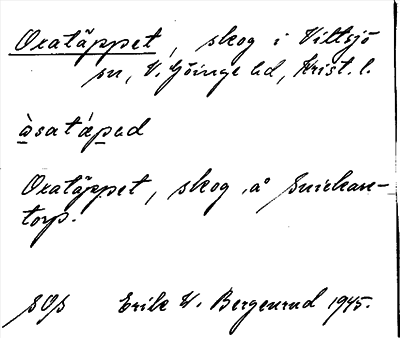 Oxatäppet, skog i Vittsjö
sn, V. Göinge hd, Krist. l.
Oxatäppet, skog å Snickare-
torp.
SOS Erik W. Bergenrud 1945.